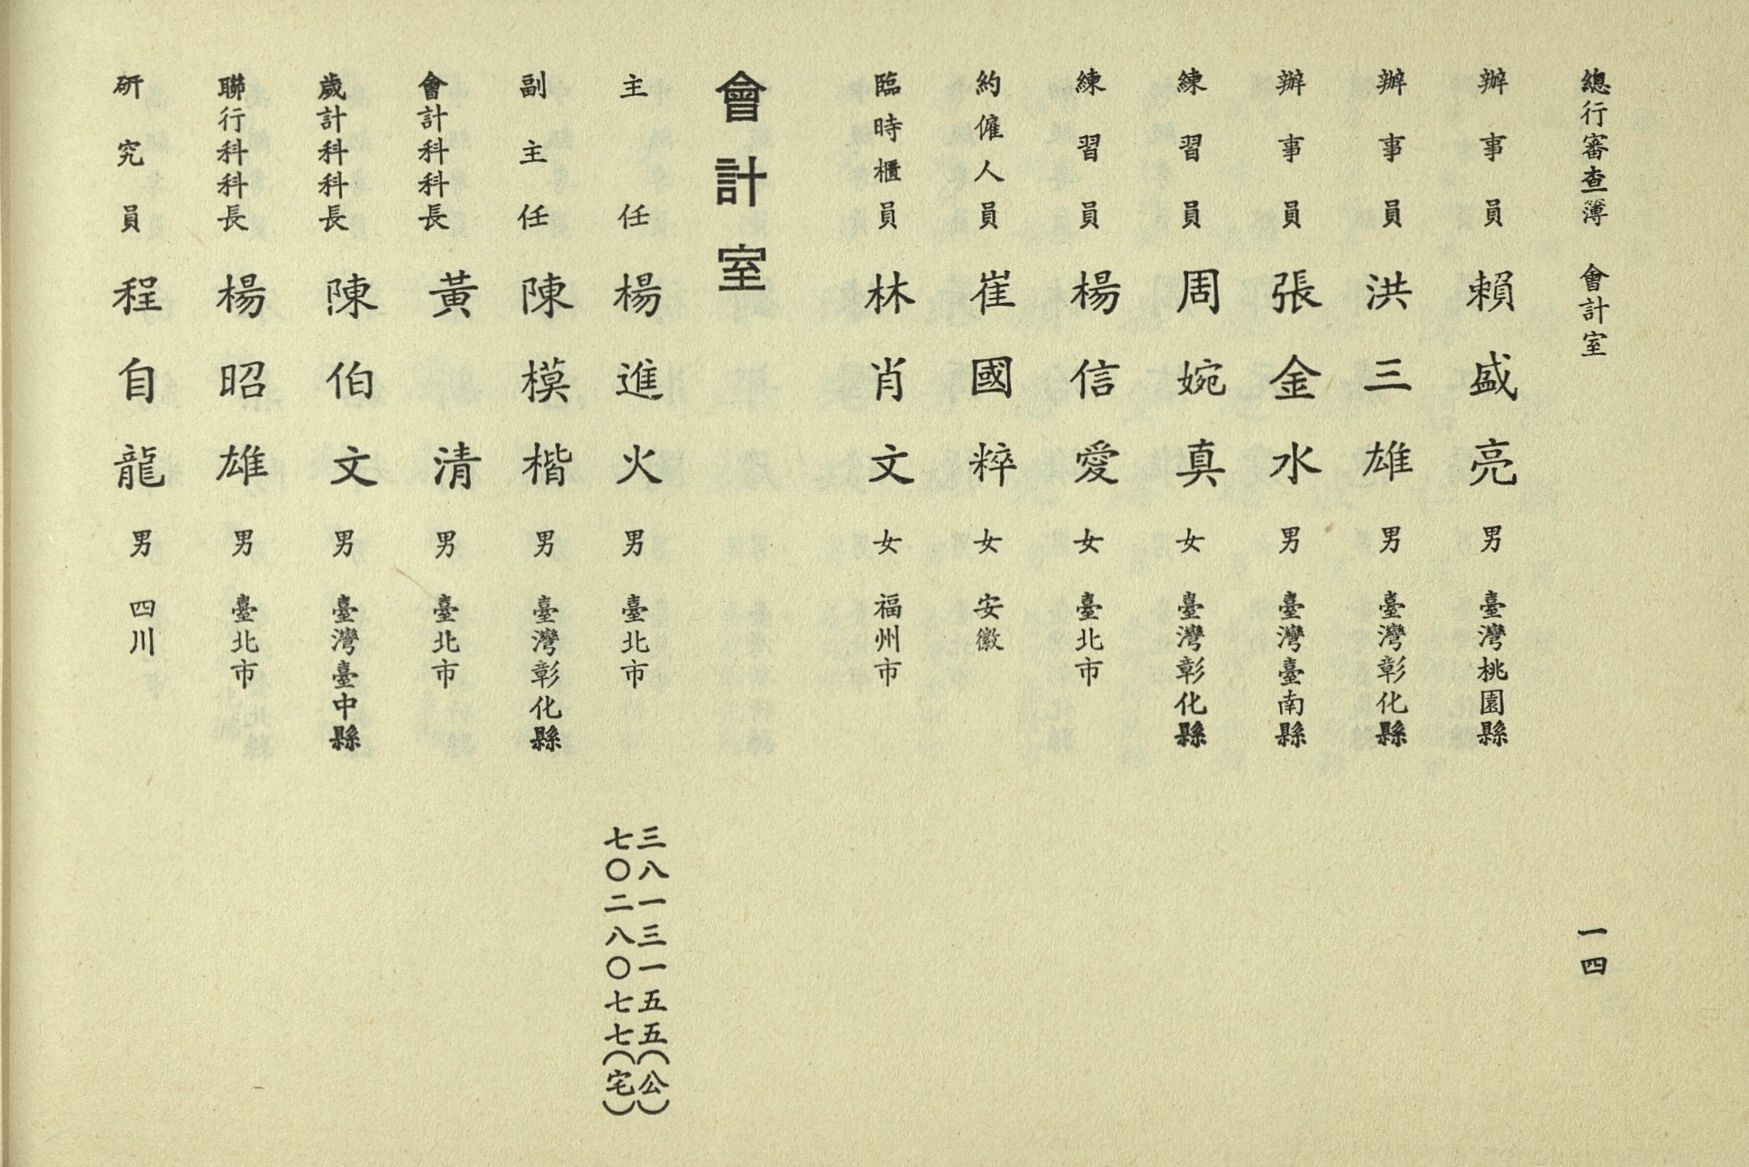 總行審查簿 會計室 一四
辦事員 賴盛亮 男 臺灣桃園縣
辦事員 洪三雄 男 臺灣彰化縣
辦事員 張金水 男 臺灣臺南縣
練習員 周婉真 女 臺灣彰化縣
練習員 楊信愛 女 臺北市
約僱人員 崔國粹 女 安徽
臨時櫃員 林肖文 女 福州市
會計室
主任 楊進火 男 臺北市 三八一三一五五(公)
七〇二八〇七七(宅)
副主任 陳模楷 男 臺灣彰化縣
會計科科長 黃清 男 臺北市
歲計科科長 陳伯文 男 臺灣臺中縣
聯行科科長 楊昭雄 男 臺北市
研究員 程自龍 男 四川